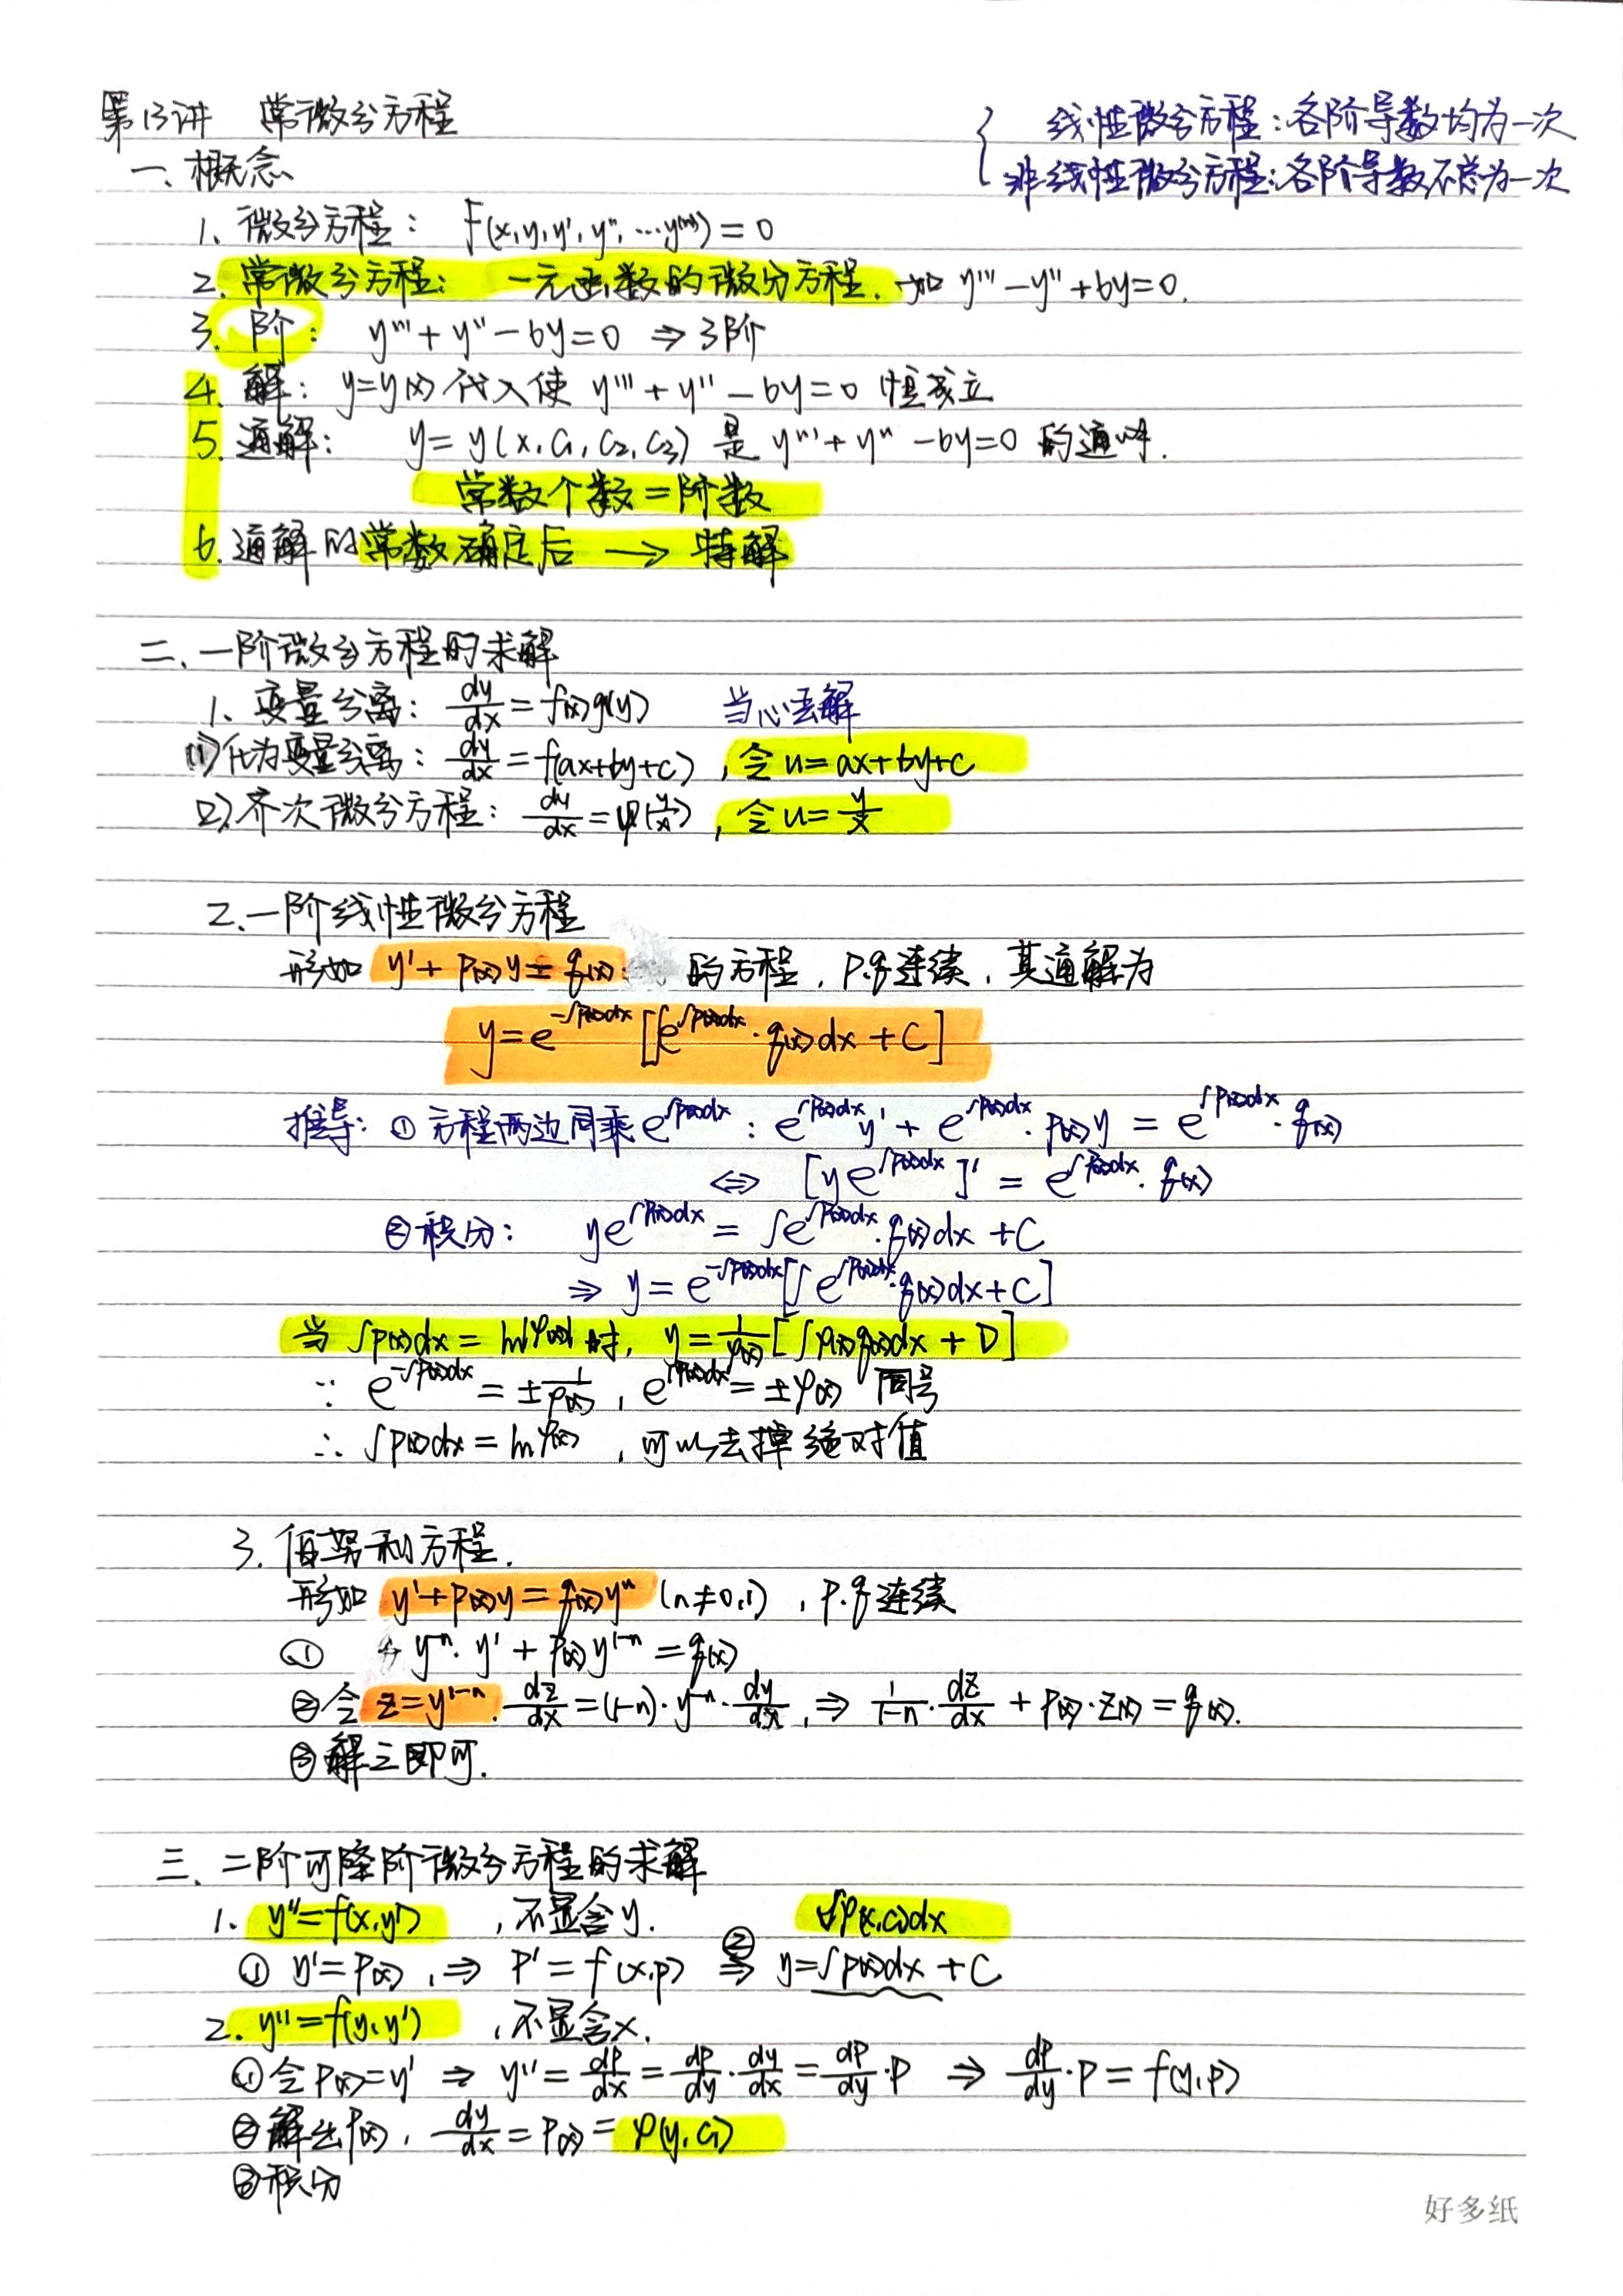 第13讲 常微分方程
{ 线性微分方程：各阶导数均为一次
非线性微分方程：各阶导数不总为一次
一、概念
1、微分方程： F(x,y,y',y'',…y⁽ⁿ⁾)=0
2. 常微分方程： 一元函数的微分方程. 如 y'''-y''+6y=0.
3. 阶： y'''+y''-6y=0 ⇒ 3阶
4. 解： y=y(x) 代入使 y'''+y''-6y=0 恒成立
5. 通解： y=y(x,C₁,C₂,C₃) 是 y'''+y''-6y=0 的通解.
常数个数=阶数
6. 通解的常数确定后 → 特解
二、一阶微分方程的求解
1、变量分离： dy/dx=f(x)g(y) 当心丢解
(1) 化为变量分离： dy/dx=f(ax+by+c) ，令u=ax+by+c
(2) 齐次微分方程： dy/dx=φ(y/x) ，令u=y/x
2.一阶线性微分方程
形如 y'+p(x)y=q(x) 的方程，p.q连续，其通解为
y=e^(-∫p(x)dx)[∫e^(∫p(x)dx)·q(x)dx+C]
推导：① 方程两边同乘e^(∫p(x)dx) ： e^(∫p(x)dx)y'+e^(∫p(x)dx)·p(x)y=e^(∫p(x)dx)·q(x)
⇔ [ye^(∫p(x)dx)]'=e^(∫p(x)dx)·q(x)
②积分： ye^(∫p(x)dx)=∫e^(∫p(x)dx)·q(x)dx+C
⇒ y=e^(-∫p(x)dx)[∫e^(∫p(x)dx)·q(x)dx+C]
当 ∫p(x)dx=ln|φ(x)| 时, y=1/φ(x)[∫φ(x)q(x)dx+D]
∵ e^(-∫p(x)dx)=±1/φ(x) , e^(∫p(x)dx)=±φ(x) 同号
∴ ∫p(x)dx=lnφ(x) ，可以去掉绝对值
3. 伯努利方程.
形如 y'+p(x)y=q(x)yⁿ (n≠0,1) ，p.q连续
① y⁻ⁿ·y'+p(x)y¹⁻ⁿ=q(x)
②令 z=y¹⁻ⁿ. dz/dx=(1-n)·y⁻ⁿ·dy/dx ,⇒ 1/(1-n)·dz/dx+p(x)·z(x)=q(x).
③解之即可.
三、二阶可降阶微分方程的求解
1. y''=f(x,y') ，不显含y.
∫φ(x,c₁)dx
① y'=p(x) ,⇒ p'=f(x,p) ②⇒ y=∫p(x)dx+C
2. y''=f(y,y') ，不显含x.
①令p(x)=y' ⇒ y''=dp/dx=dp/dy·dy/dx=dp/dy·p ⇒ dp/dy·p=f(y,p)
②解出p(x) , dy/dx=p(x)=φ(y,c₁)
③积分
好多纸